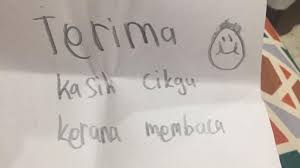 Terima
kasih cikgu
kerana membaca